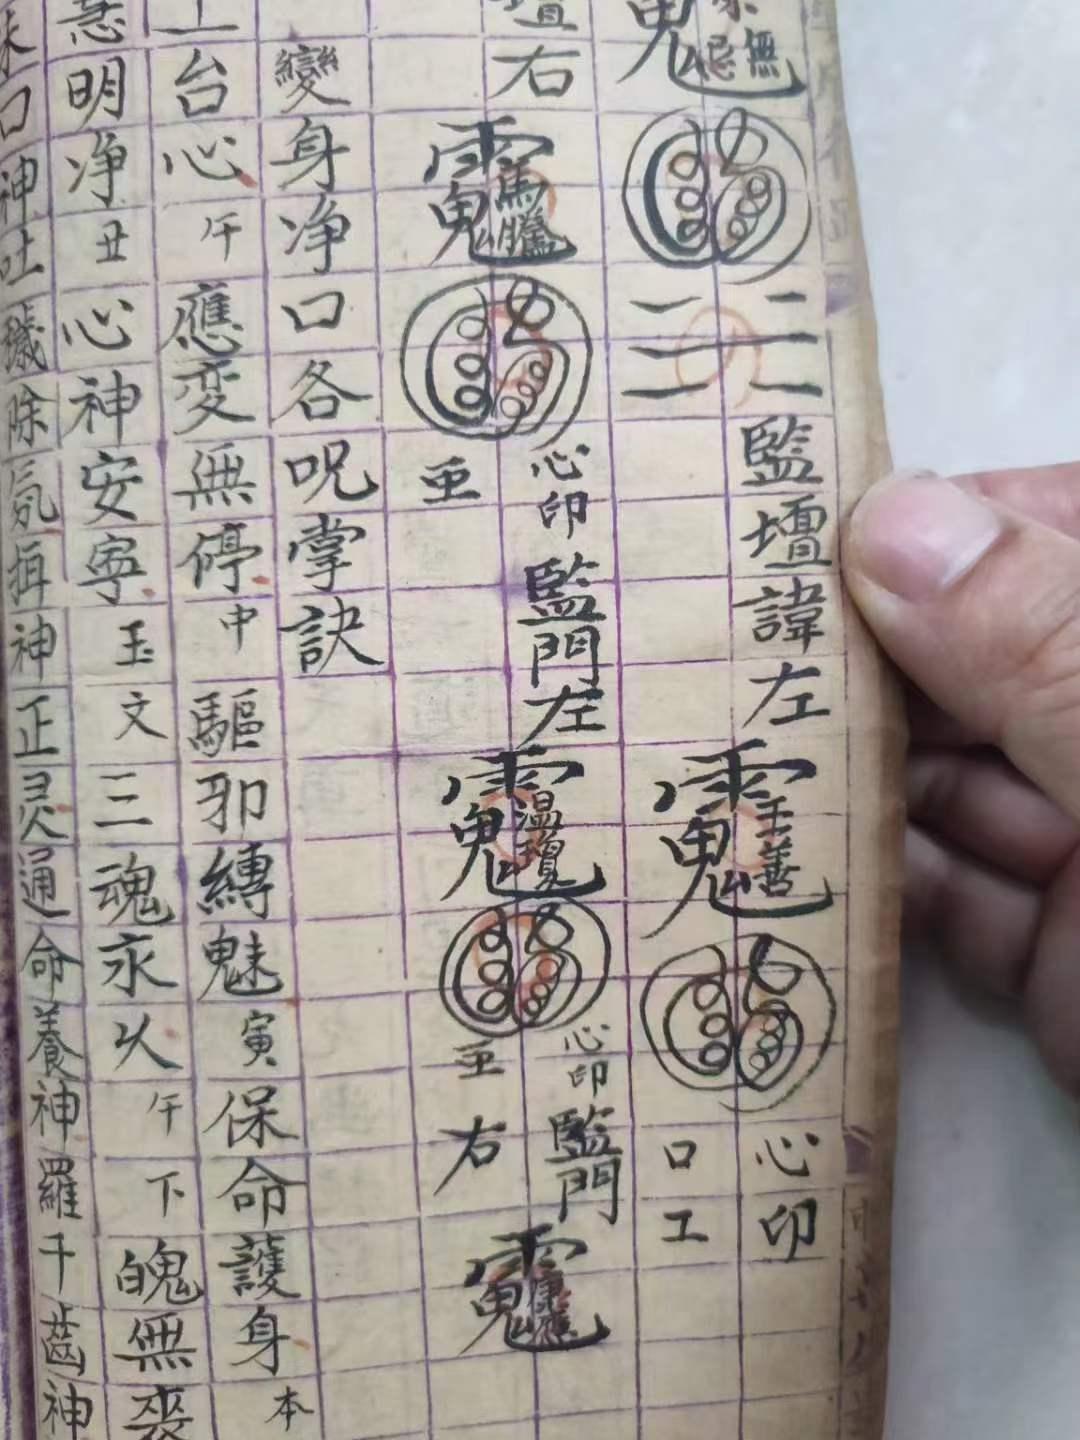 無忌
監壇諱左
王善
心印
口工
壇右
馬勝
心印
監門左
温瓊
心印
監門
右
康應
變身净口各呪掌訣
台心午應变無停中驅邪縛魅寅保命護身本
慧明净丑心神安寧玉文三魂永久午下魄無喪
口神吐穢除氛
神正灵通命養神羅千齒神